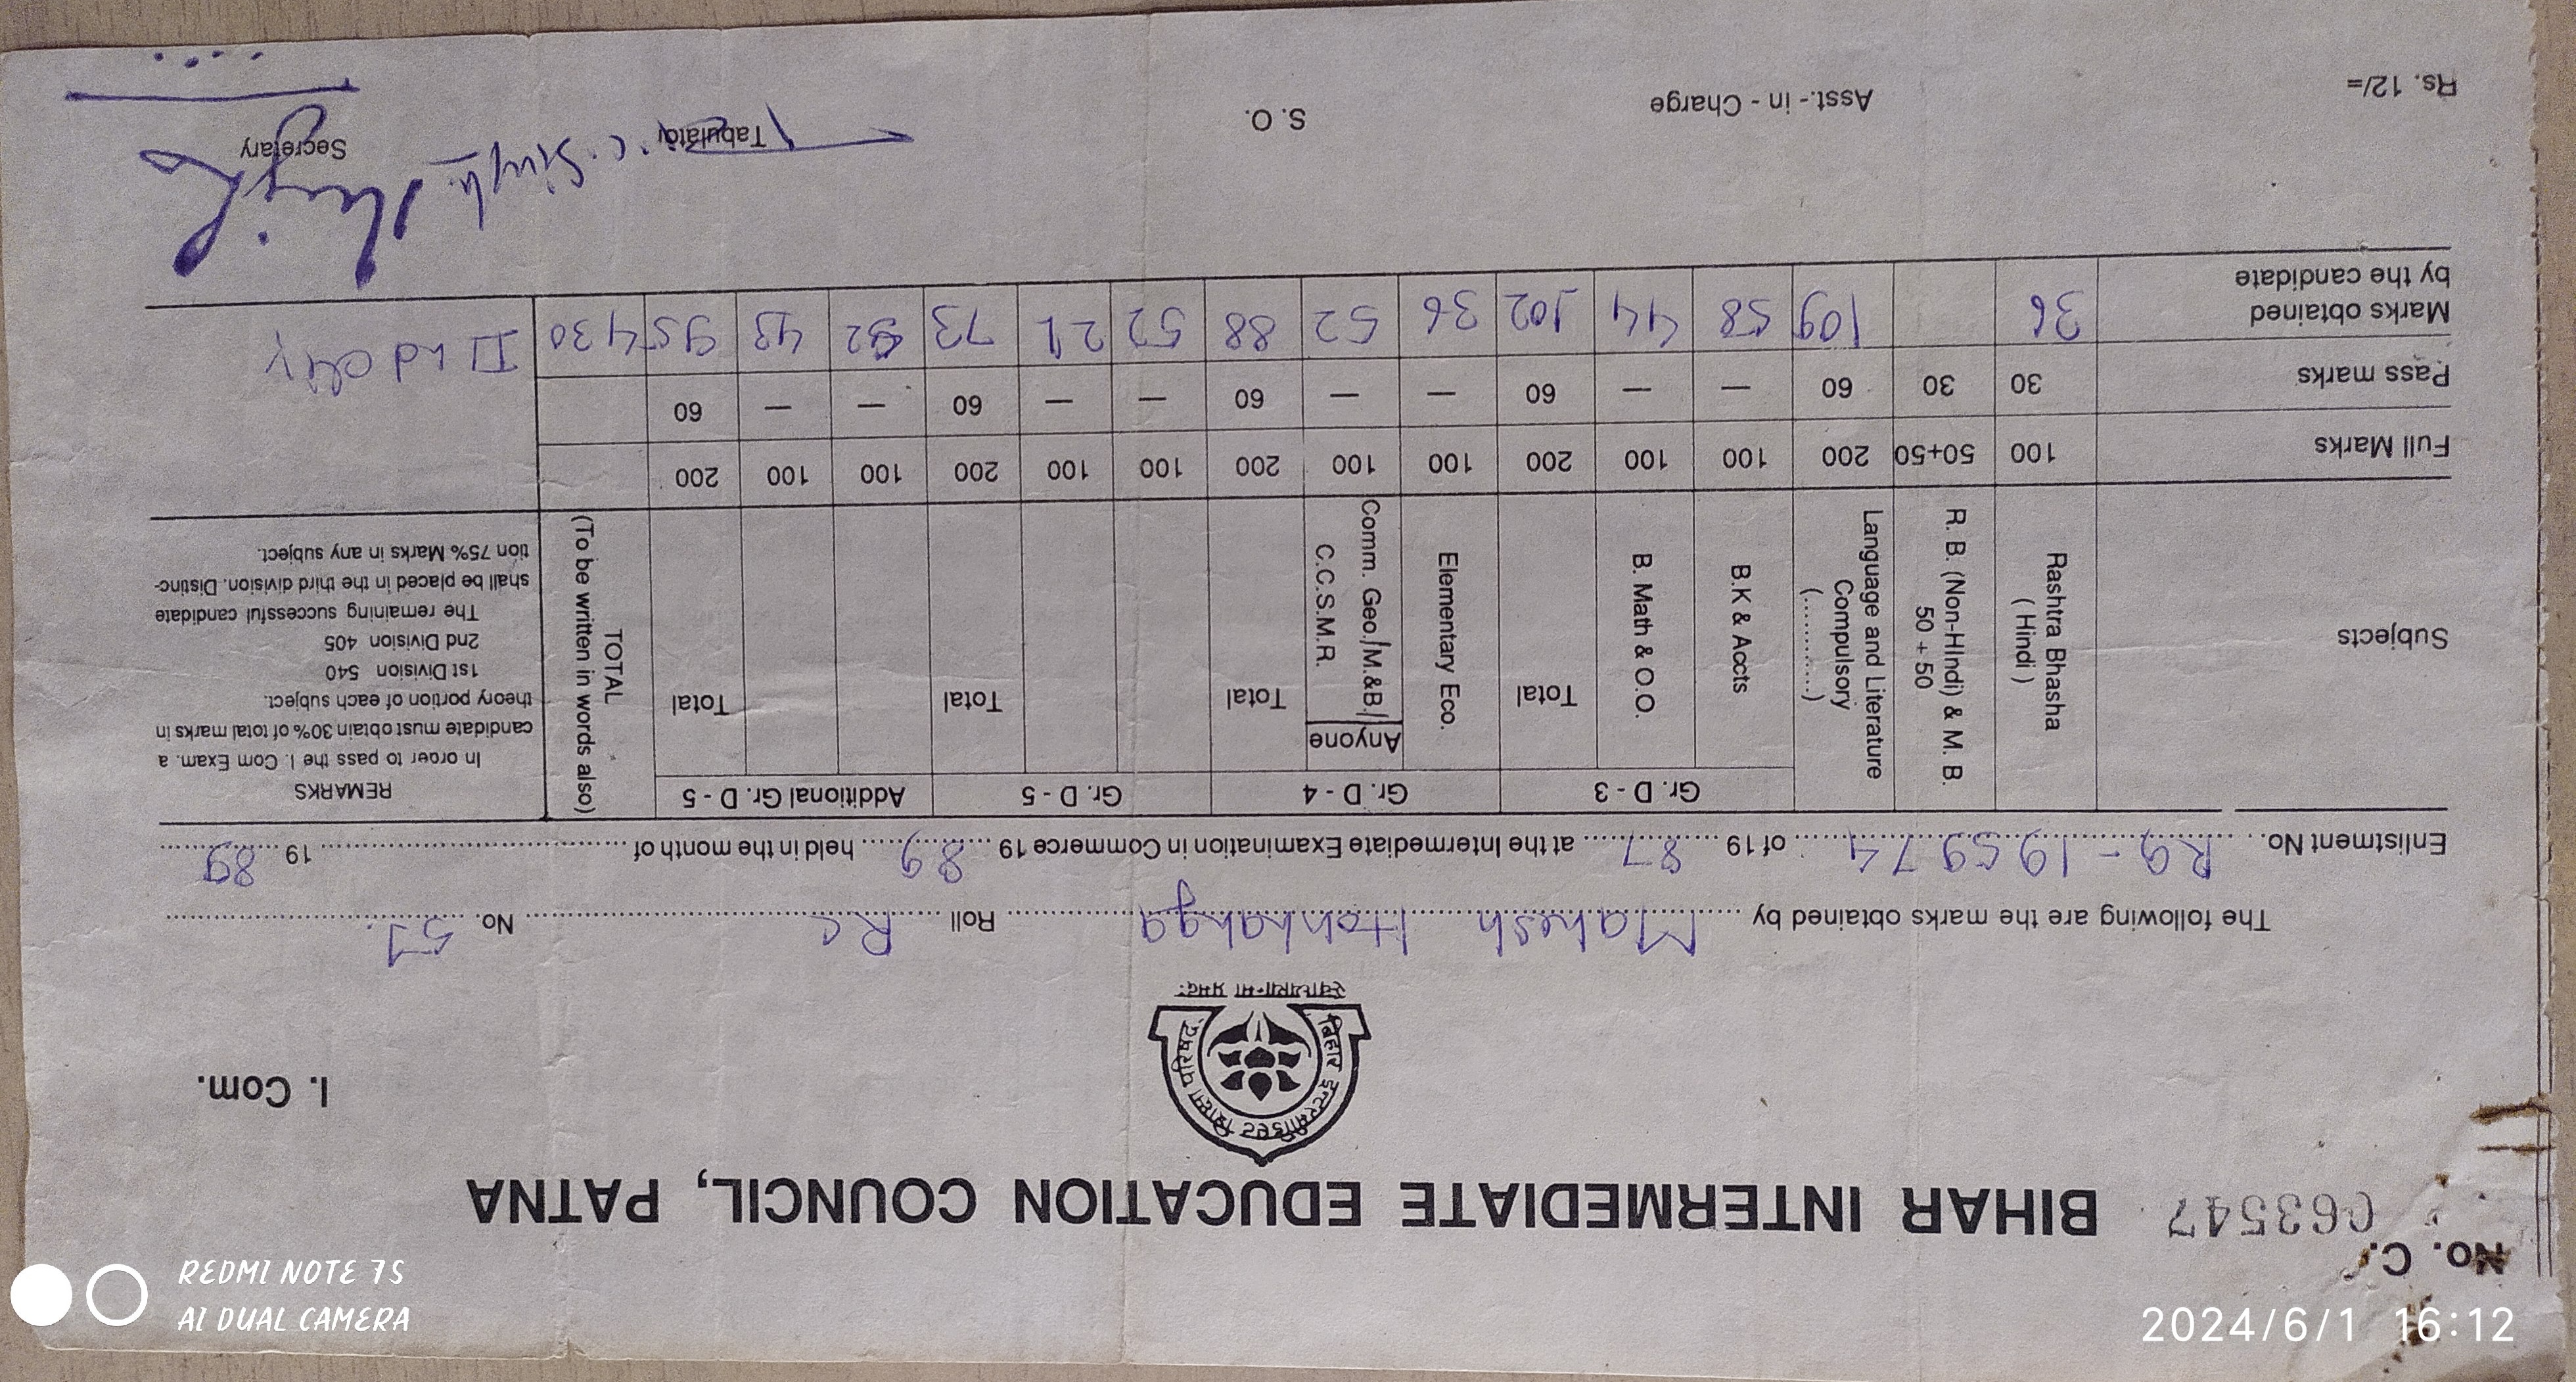 No. C.
063547 BIHAR INTERMEDIATE EDUCATION COUNCIL, PATNA
I. Com.
बिहार इन्टरमीडिएट शिक्षा परिषद्
स्वाध्यायान्मा प्रमदः
The following are the marks obtained by Mahesh Roll RC No. 51.
Enlistment No. R9-195974 of 19 87 at the Intermediate Examination in Commerce 19 89 held in the month of 19 89
Subjects
Rashtra Bhasha
( Hindi )
R. B. (Non-HIndi) & M. B.
50 + 50
Language and Literature
Compulsory
(..........)
Gr. D - 3
B.K & Accts
B. Math & O.O.
Total
Gr. D - 4
Elementary Eco.
Anyone
Comm. Geo./M.&B./
C.C.S.M.R.
Total
Gr. D - 5
Total
Additional Gr. D - 5
Total
TOTAL
(To be written in words also)
REMARKS
In oroer to pass the I. Com Exam. a
candidate must obtain 30% of total marks in
theory portion of each subject.
1st Division 540
2nd Division 405
The remaining successful candidate
shall be placed in the third division. Distinc-
tion 75% Marks in any subject.
Full Marks 100 50+50 200 100 100 200 100 100 200 100 100 200 100 100 200
Pass marks 30 30 60 — — 60 — — 60 — — 60 — — 60
Marks obtained
by the candidate
36 109 58 44 102 36 52 88 52 21 73 52 43 95 430 II nd
Rs. 12/=
Asst.- in - Charge
S. O.
Tabulator
Secretary
REDMI NOTE 7S
AI DUAL CAMERA
2024/6/1 16:12